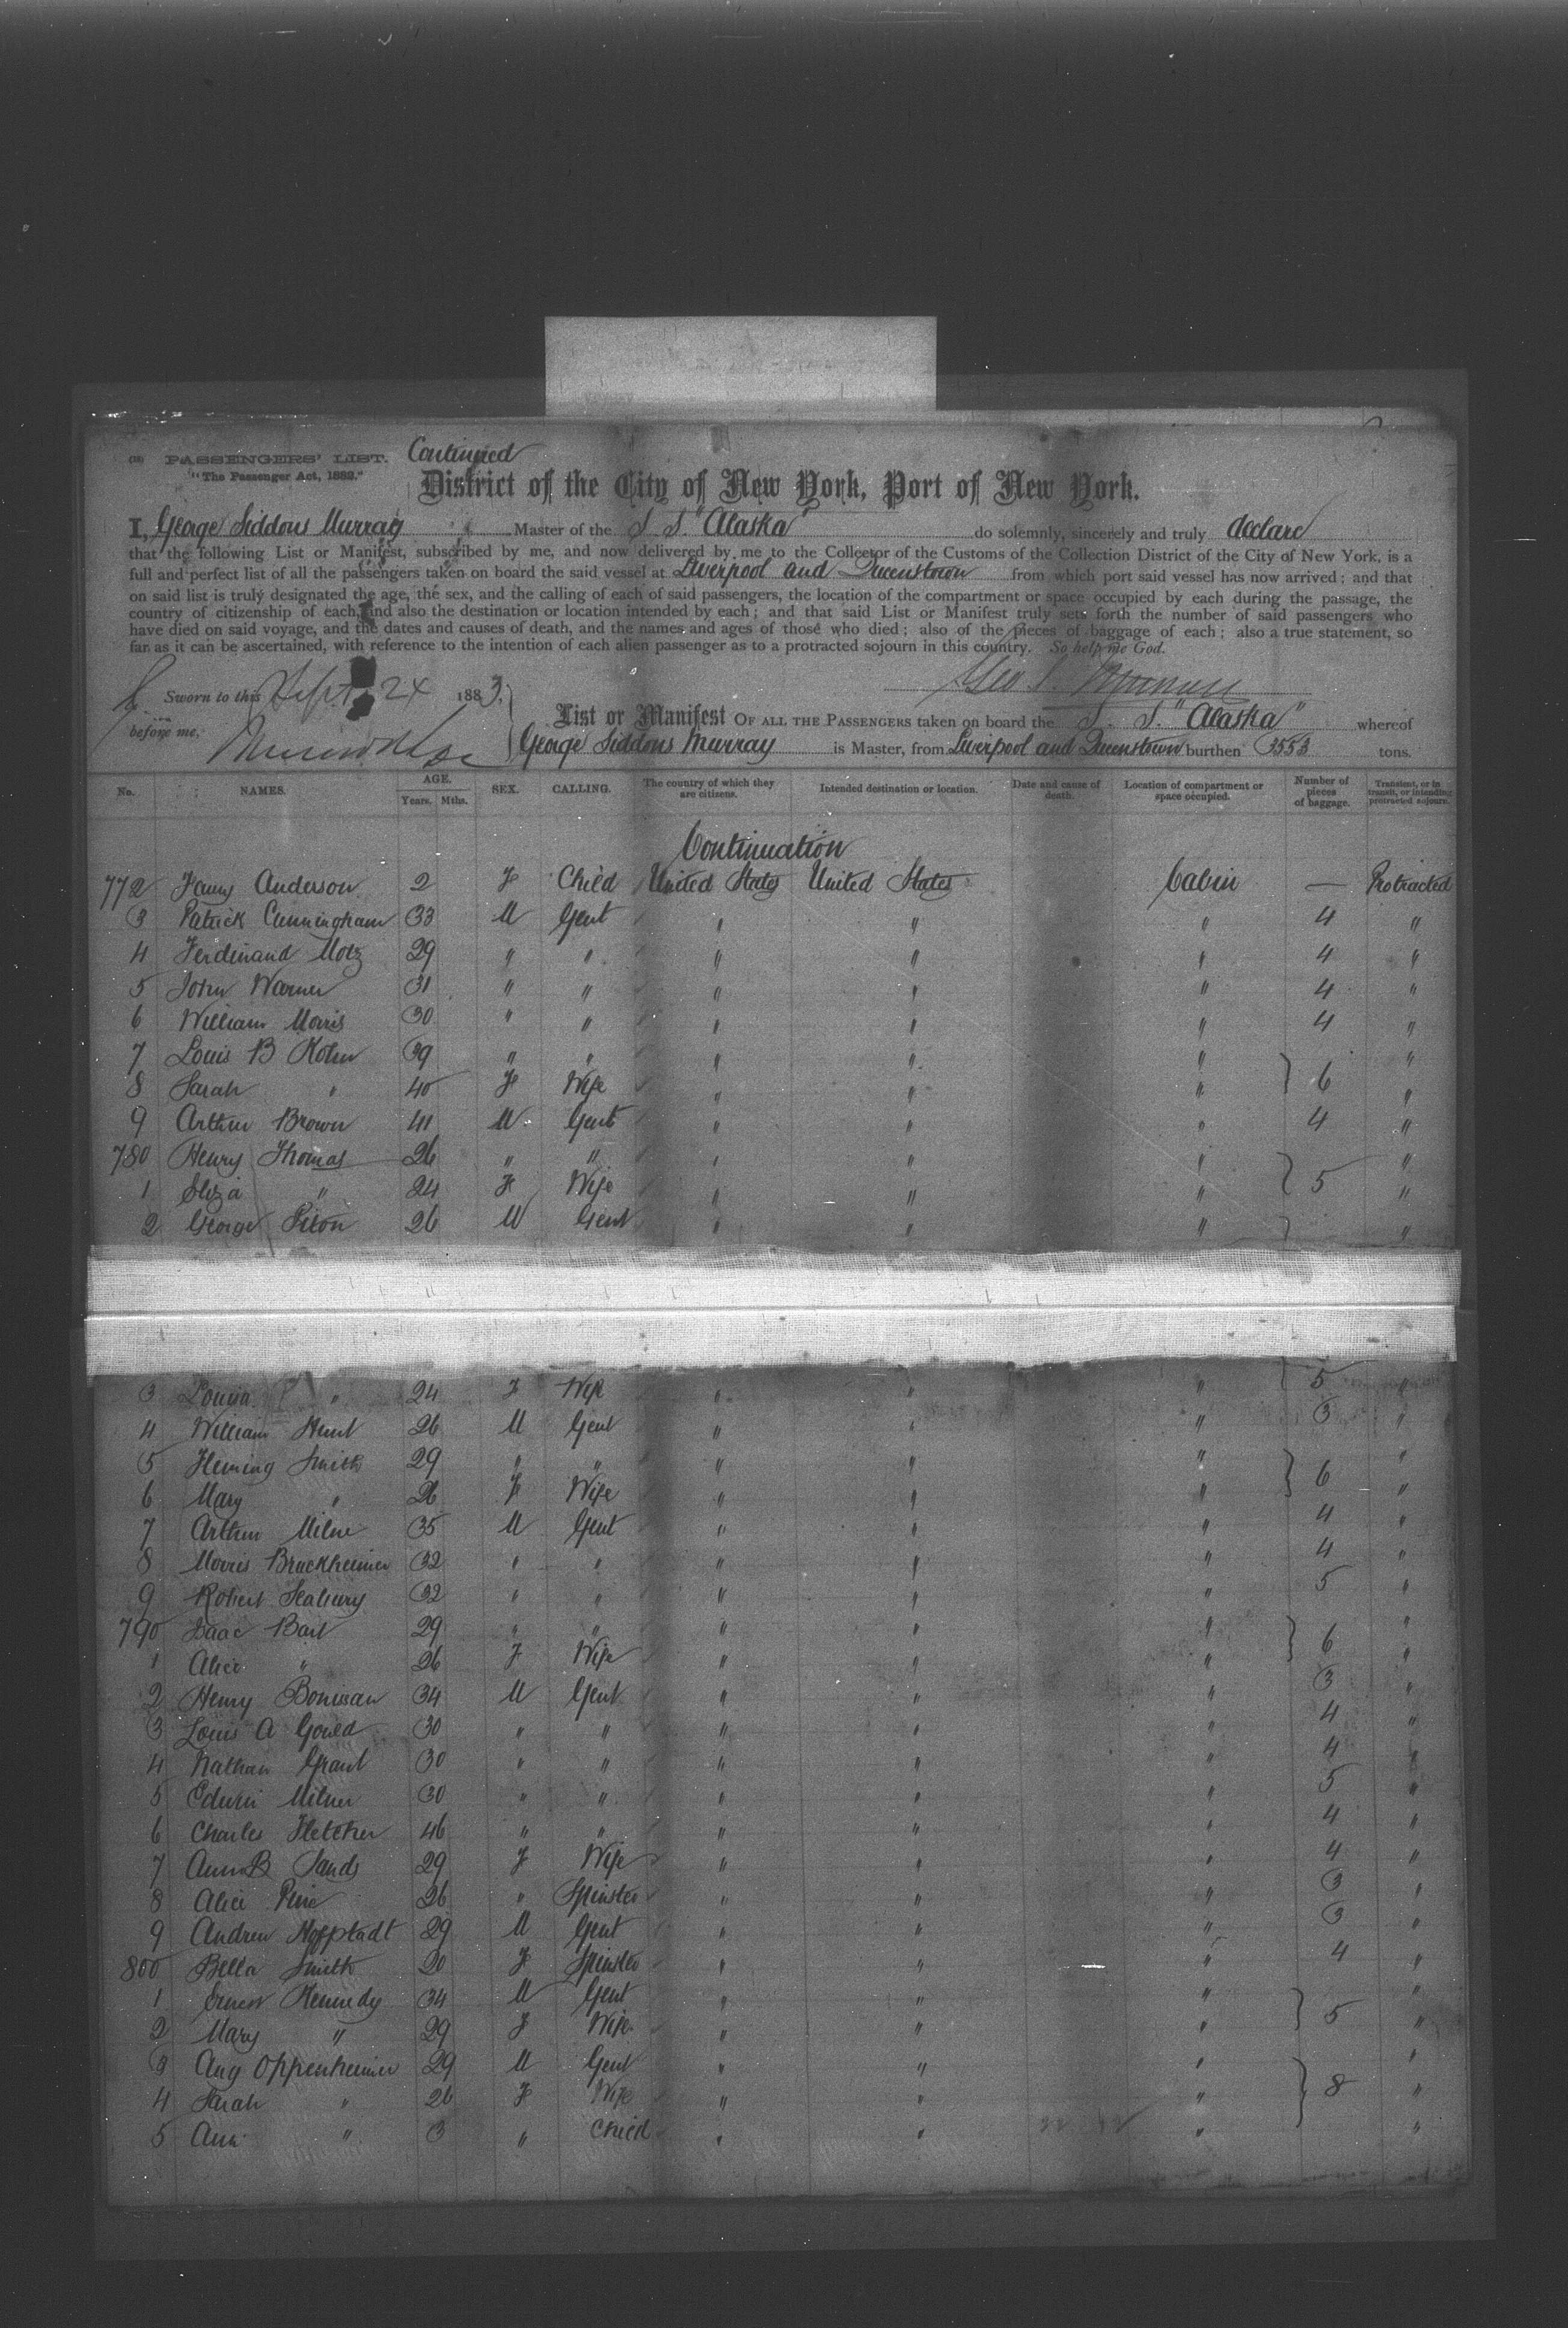 (18) PASSENGERS' LIST. Continued
"The Passenger Act, 1882."
District of the City of New York, Port of New York.
I, George Siddons Murray Master of the S. S. "Alaska" do solemnly, sincerely and truly declare
that the following List or Manifest, subscribed by me, and now delivered by me to the Collector of the Customs of the Collection District of the City of New York, is a
full and perfect list of all the passengers taken on board the said vessel at Liverpool and Queenstown from which port said vessel has now arrived; and that
on said list is truly designated the age, the sex, and the calling of each of said passengers, the location of the compartment or space occupied by each during the passage, the
country of citizenship of each, and also the destination or location intended by each; and that said List or Manifest truly sets forth the number of said passengers who
have died on said voyage, and the dates and causes of death, and the names and ages of those who died; also of the pieces of baggage of each; also a true statement, so
far as it can be ascertained, with reference to the intention of each alien passenger as to a protracted sojourn in this country. So help me God.
Sworn to this Sept. 24 1883. Geo S. Murray
before me,
List or Manifest OF ALL THE PASSENGERS taken on board the S. S. "Alaska" whereof
George Siddons Murray is Master, from Liverpool and Queenstown burthen 3553 tons.
No. NAMES. AGE. Years. Mths. SEX. CALLING. The country of which they are citizens. Intended destination or location. Date and cause of death. Location of compartment or space occupied. Number of pieces of baggage. Transient, or in transit, or intending protracted sojourn.
Continuation
772 Fanny Anderson 2 F Child United States United States Cabin — Protracted
3 Patrick Cunningham 33 M Gent " " " 4 "
4 Ferdinand Motz 29 " " " " " 4 "
5 John Warner 31 " " " " " 4 "
6 William Morris 30 " " " " " 4 "
7 Louis B Kohn 39 " " " " " "
8 Sarah " 40 F Wife " " " 6 "
9 Arthur Brown 41 M Gent " " " 4 "
780 Henry Thomas 26 " " " " " "
1 Eliza " 24 F Wife " " " 5 "
2 George 26 M Gent " " " "
3 Louisa " 24 F Wife " " " 5 "
4 William Hunt 26 M Gent " " " 3 "
5 Fleming Smith 29 " " " " " "
6 Mary " 26 F Wife " " " 6 "
7 Arthur Milne 35 M Gent " " " 4 "
8 Morris Bruckheimer 32 " " " " " 4 "
9 Robert Seabury 32 " " " " " 5 "
790 Isaac 29 " " " " " "
1 Alice " 26 F Wife " " " 6 "
2 Henry 34 M Gent " " " 3 "
3 Louis A Gould 30 " " " " " 4 "
4 Nathan Grant 30 " " " " " 4 "
5 Edwin Milner 30 " " " " " 5 "
6 Charles Fletcher 46 " " " " " 4 "
7 Ann B Sands 29 F Wife " " " 4 "
8 Alice 26 " Spinster " " " 3 "
9 Andrew Hoffstadt 29 M Gent " " " 3 "
800 Bella Smith 20 F Spinster " " " 4 "
1 Ernest Kennedy 34 M Gent " " " "
2 Mary " 29 F Wife " " " 5 "
3 Aug Oppenheimer 29 M Gent " " " "
4 Sarah " 26 F Wife " " " 8 "
5 Ann " 3 " Child " " " "